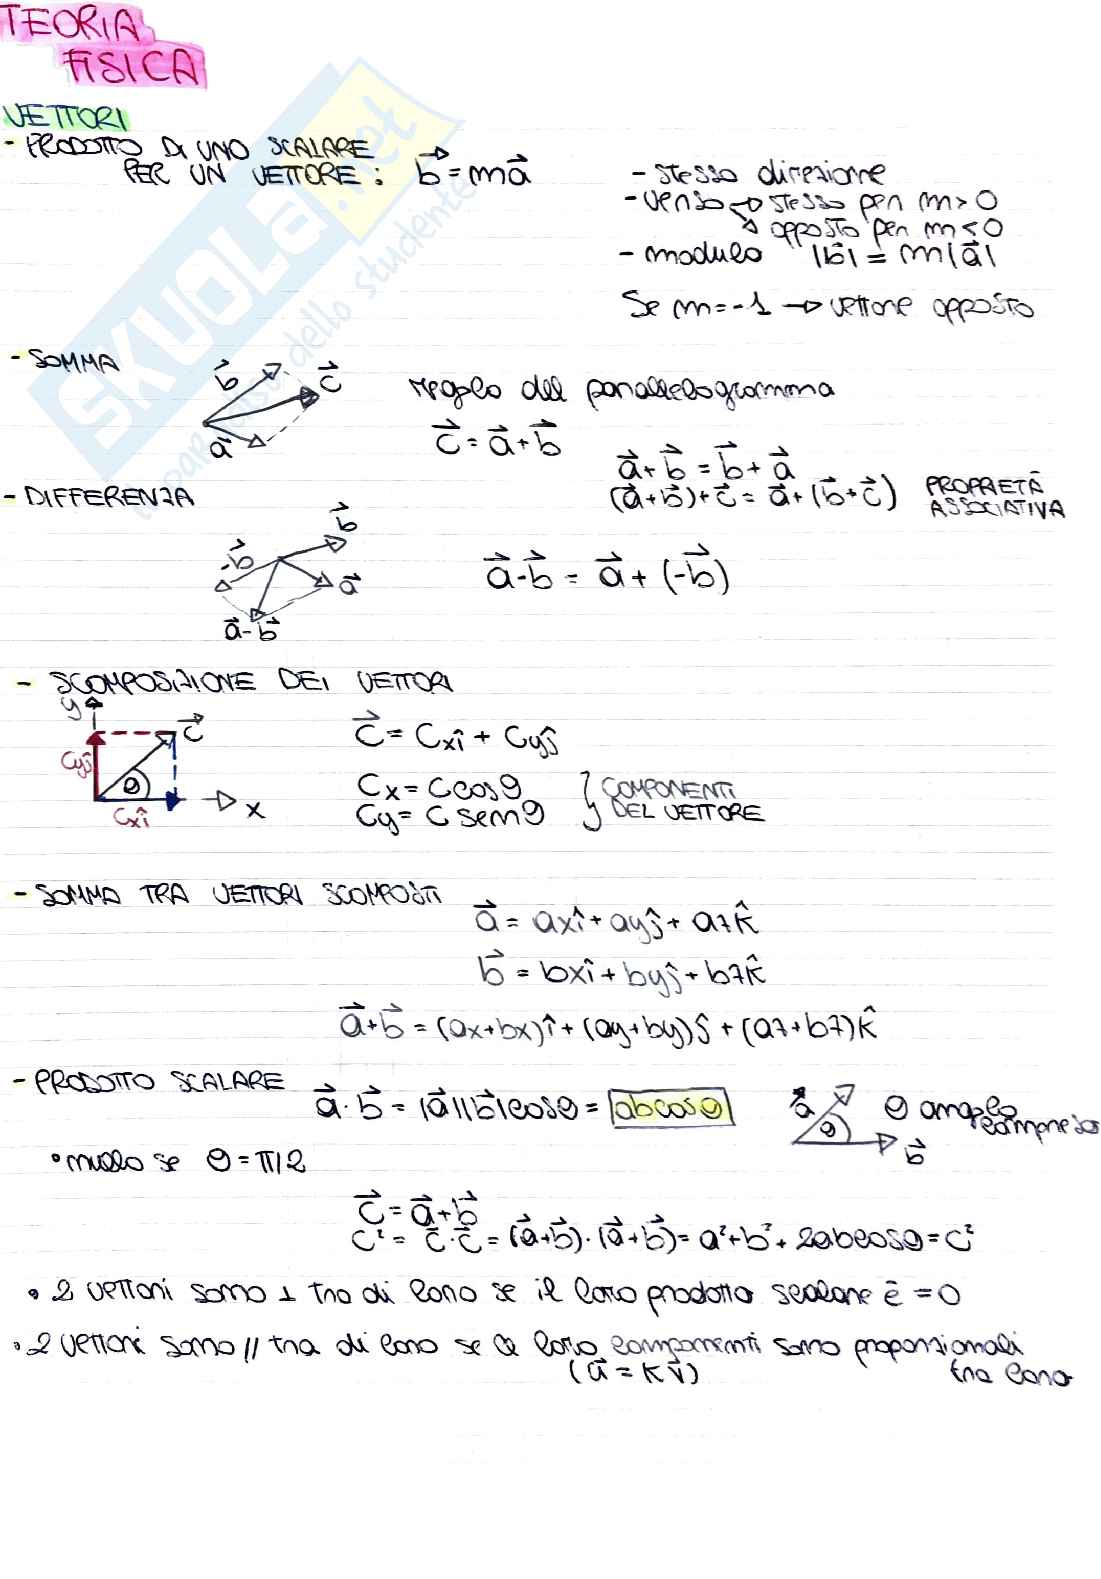 TEORIA
FISICA
VETTORI
- PRODOTTO DI UNO SCALARE
PER UN VETTORE: b⃗ = ma⃗
- stesso direzione
- verso → stesso per m > 0
→ opposto per m < 0
- modulo |b⃗| = m|a⃗|
Se m = -1 → vettore opposto
- SOMMA
b⃗ c⃗ a⃗
regola del parallelogramma
c⃗ = a⃗ + b⃗
a⃗ + b⃗ = b⃗ + a⃗
(a⃗ + b⃗) + c⃗ = a⃗ + (b⃗ + c⃗) PROPRIETÀ
ASSOCIATIVA
- DIFFERENZA
b⃗ -b⃗ a⃗ a⃗-b⃗
a⃗ - b⃗ = a⃗ + (-b⃗)
- SCOMPOSIZIONE DEI VETTORI
y c⃗ Cyĵ θ Cxî x
c⃗ = Cxî + Cyĵ
Cx = C cosθ
Cy = C senθ
} COMPONENTI
DEL VETTORE
- SOMMA TRA VETTORI SCOMPOSTI
a⃗ = axî + ayĵ + azk̂
b⃗ = bxî + byĵ + bzk̂
a⃗ + b⃗ = (ax+bx)î + (ay+by)ĵ + (az+bz)k̂
- PRODOTTO SCALARE
a⃗ · b⃗ = |a⃗||b⃗|cosθ = abcosθ
a⃗ θ b⃗
θ angolo
compreso
• nullo se θ = π/2
c⃗ = a⃗ + b⃗
c² = c⃗ · c⃗ = (a⃗+b⃗) · (a⃗+b⃗) = a² + b² + 2abcosθ = c²
• 2 vettori sono ⊥ tra di loro se il loro prodotto scalare è = 0
• 2 vettori sono // tra di loro se le loro componenti sono proporzionali
(u⃗ = k v⃗) tra loro
SKUOLA.net
il paradiso dello studente